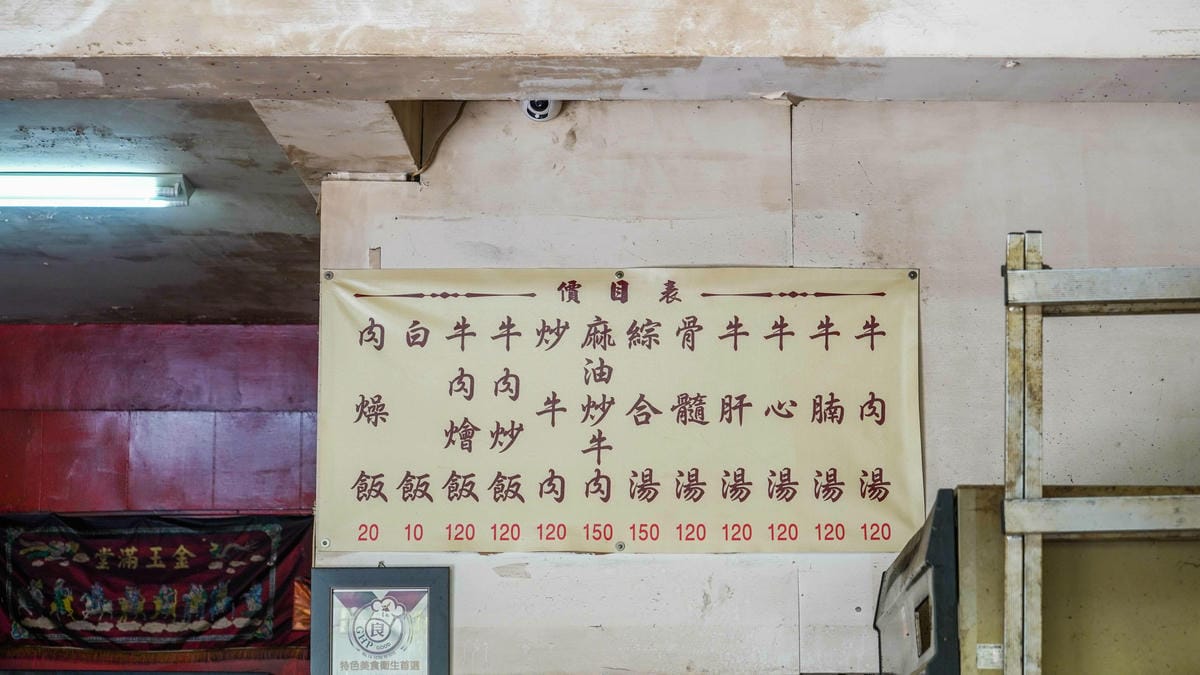 價目表
牛肉湯 120
牛腩湯 120
牛心湯 120
牛肝湯 120
骨髓湯 120
綜合湯 150
麻油炒牛肉 150
炒牛肉 120
牛肉炒飯 120
牛肉燴飯 120
白飯 10
肉燥飯 20
堂滿玉金
良
GHP
GOOD
特色美食衛生首選